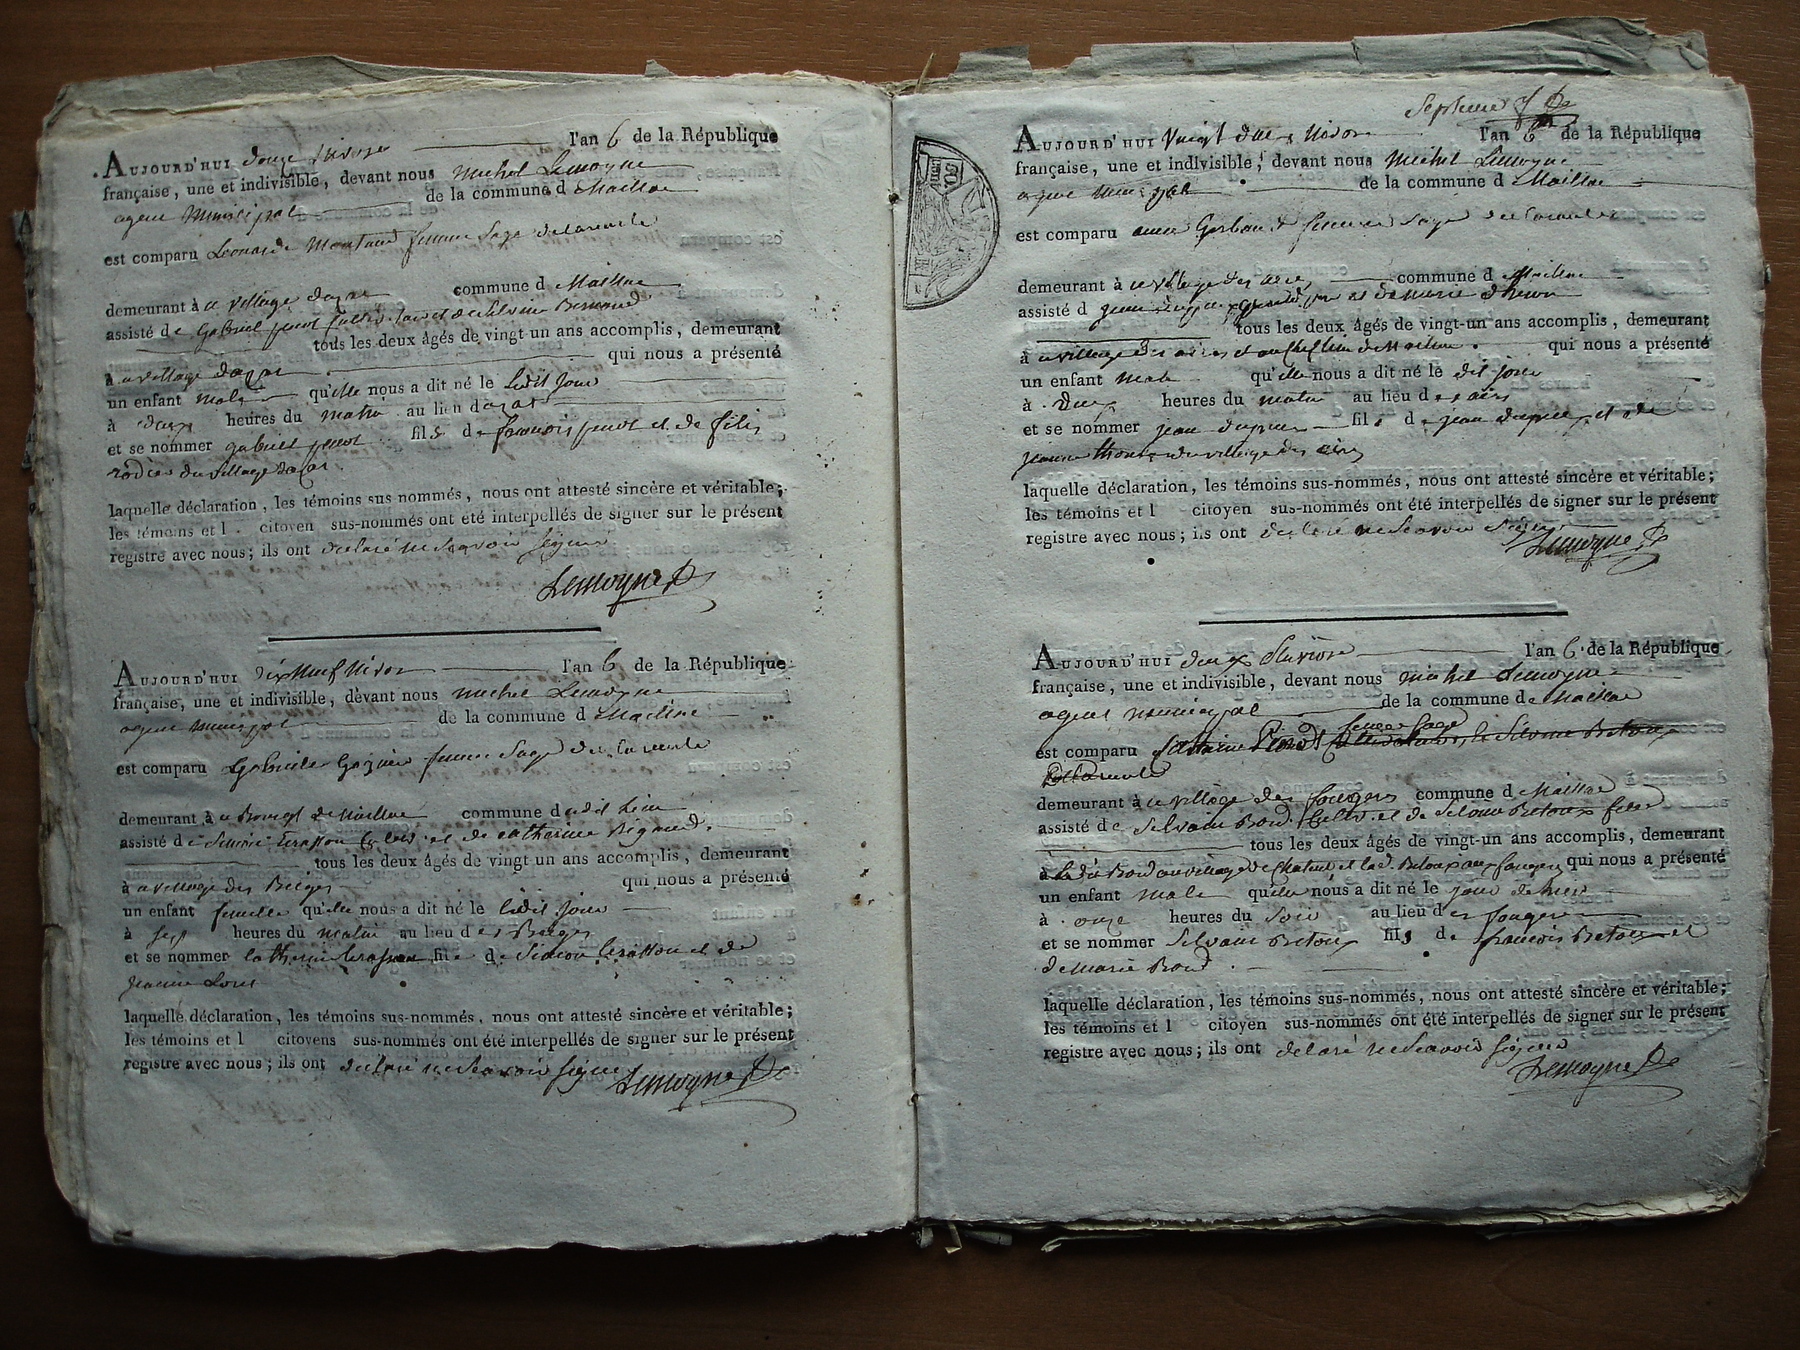 Aujourd'hui douze Nivose l'an 6 de la République
française, une et indivisible, devant nous michel Lemoyne
agent Municipal de la commune d Maillac
est comparu Leonarde Montaud femme Sage
demeurant à u village dazat commune d Maillac
assisté de Gabriel et de Silvine
tous les deux âgés de vingt-un ans accomplis, demeurant
à u village dazat qui nous a présenté
un enfant male qu'elle nous a dit né le ledit jour
à deux heures du matin au lieu dazat
et se nommer gabriel fils de francois et de
du village dazat
laquelle déclaration, les témoins sus-nommés, nous ont attesté sincère et véritable;
les témoins et l citoyen sus-nommés ont été interpellés de signer sur le présent
registre avec nous; ils ont declaré ne Scavoir Signer
Lemoyne
Aujourd'hui dix Neuf Nivose l'an 6 de la République
française, une et indivisible, devant nous michel Lemoyne
agent Municipal de la commune d Maillac
est comparu Gabrielle femme Sage
demeurant à u Bourgt de Maillac commune d udit Lieu
assisté de Simon et de catherine Rigaud
tous les deux âgés de vingt-un ans accomplis, demeurant
à u village des Beiges qui nous a présenté
un enfant femelle qu'elle nous a dit né le ledit jour
à sept heures du matin au lieu des Beiges
et se nommer Catherine fille de Simon et de
jeanne
laquelle déclaration, les témoins sus-nommés, nous ont attesté sincère et véritable;
les témoins et l citoyens sus-nommés ont été interpellés de signer sur le présent
registre avec nous; ils ont declaré ne Scavoir signer
Lemoyne
Aujourd'hui Vingt deux Nivose l'an 6 de la République
française, une et indivisible, devant nous Michel Lemoyne
agent Municipal de la commune d Maillac
est comparu anne femme Sage
demeurant à u village des aires commune d Maillac
assisté d et de Marie
tous les deux âgés de vingt-un ans accomplis, demeurant
à u village des aires et de Maillac qui nous a présenté
un enfant Male qu'elle nous a dit né le dit jour
à Deux heures du matin au lieu des aires
et se nommer jean dupuis fils de jean dupuis et de
jeanne du village des aires
laquelle déclaration, les témoins sus-nommés, nous ont attesté sincère et véritable;
les témoins et l citoyen sus-nommés ont été interpellés de signer sur le présent
registre avec nous; ils ont declaré ne Scavoir Signer
Lemoyne
Aujourd'hui deux Pluviose l'an 6 de la République
française, une et indivisible, devant nous michel Lemoyne
agent municipal de la commune de Maillac
est comparu femme Sage Silvine Betoux
demeurant à u village des fougeres commune d Maillac
assisté de Silvain Bord et de Silvine Betoux
tous les deux âgés de vingt-un ans accomplis, demeurant
à Ledit Bord au village de et lad. Betoux aux fougeres qui nous a présenté
un enfant male qu'elle nous a dit né le jour de hier
à onze heures du Soir au lieu des fougeres
et se nommer Silvain Betoux fils de francois Betoux et
de Marie Bord
laquelle déclaration, les témoins sus-nommés, nous ont attesté sincère et véritable;
les témoins et l citoyen sus-nommés ont été interpellés de signer sur le présent
registre avec nous; ils ont declaré ne Scavoir signer
Lemoyne